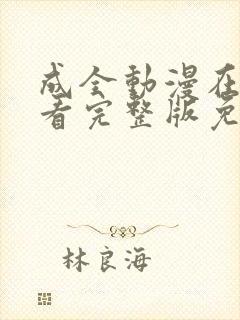 成全動漫在
看完整版免
林良海